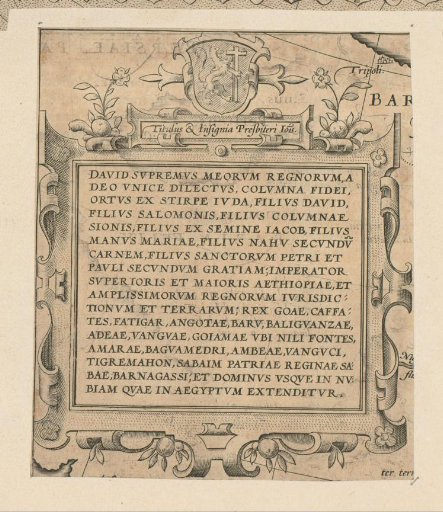 SIAE, PA
Tripoli
BAR
Titulus & Insignia Presbiteri Ioīs.
DAVID SVPREMVS MEORVM REGNORVM, A
DEO VNICE DILECTVS, COLVMNA FIDEI,
ORTVS EX STIRPE IVDA, FILIVS DAVID,
FILIVS SALOMONIS, FILIVS COLVMNAE
SIONIS, FILIVS EX SEMINE IACOB, FILIVS
MANVS MARIAE, FILIVS NAHV SECVNDV̄
CARNEM, FILIVS SANCTORVM PETRI ET
PAVLI SECVNDVM GRATIAM; IMPERATOR
SVPERIORIS ET MAIORIS AETHIOPIAE, ET
AMPLISSIMORVM REGNORVM IVRISDIC-
TIONVM ET TERRARVM; REX GOAE, CAFFA-
TES, FATIGAR, ANGOTAE, BARV, BALIGVANZAE,
ADEAE, VANGVAE, GOIAMAE VBI NILI FONTES,
AMARAE, BAGVAMEDRI, AMBEAE, VANGVCI,
TIGREMAHON, SABAIM PATRIAE REGINAE SA-
BAE, BARNAGASSI; ET DOMINVS VSQVE IN NV-
BIAM QVAE IN AEGYPTVM EXTENDITVR.